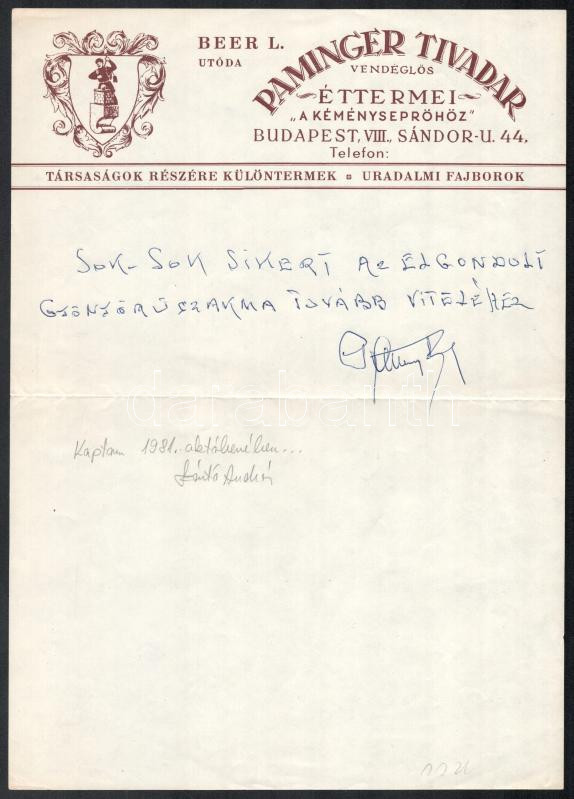 BEER L.
UTÓDA
PAMINGER TIVADAR
VENDÉGLŐS
ÉTTERMEI
„A KÉMÉNYSEPRŐHÖZ"
BUDAPEST, VIII., SÁNDOR-U. 44,
Telefon:
TÁRSASÁGOK RÉSZÉRE KÜLÖNTERMEK ¤ URADALMI FAJBOROK
SOK-SOK SIKERT AZ ELGONDOLT
GYÖNYÖRŰ SZAKMA TOVÁBB VITELÉHEZ
darabanth
Kaptam 1981. októberében...
Szántó András